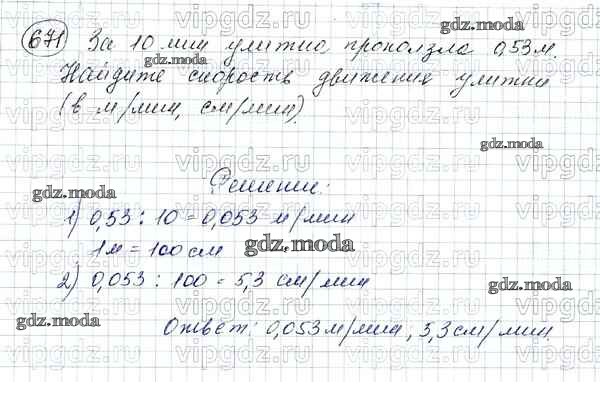 671 За 10 мин улитка проползла 0,53 м.
Найдите скорость движения улитки
(в м/мин, см/мин).
Решение:
1) 0,53 : 10 = 0,053 м/мин
1м = 100 см
2) 0,053 : 100 = 5,3 см/мин
Ответ: 0,053 м/мин, 5,3 см/мин.
gdz.moda
gdz.moda
gdz.moda
gdz.moda
gdz.moda
gdz.moda
gdz.moda
gdz.moda
vipgdz.ru